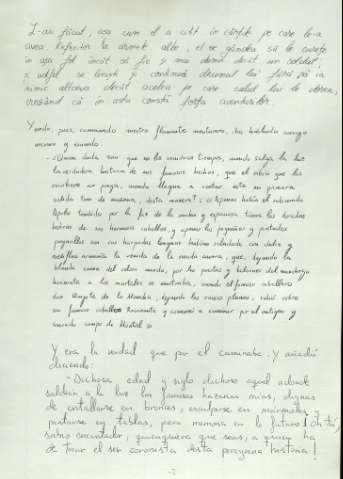 L-au făcut, așa cum el a citit în cărțile pe care le-a
avea. Referitor la armele albe, el se gândea să le curețe
în așa fel încât să fie și mai demn decât un soldat,
astfel se liniști și continuă drumul lui fără să ia
nimic altceva decât acelea pe care calul lui le dorea,
crezând că în asta constă forța aventurilor.
Yendo, pues, caminando nuestro flamante aventurero, iba hablando consigo
mesmo y diciendo:
- ¿Quién duda sino que en los venideros tiempos, cuando salga a la luz
la verdadera historia de mis famosos hechos, que el sabio que los
escribiere no ponga, cuando llegue a contar esta mi primera
salida tan de mañana, desta manera?: «Apenas había el rubicundo
Apolo tendido por la faz de la ancha y espaciosa tierra las doradas
hebras de sus hermosos cabellos, y apenas los pequeños y pintados
pajarillos con sus harpadas lenguas habían saludado con dulce y
meliflua armonía la venida de la rosada aurora, que, dejando la
blanda cama del celoso marido, por las puertas y balcones del manchego
horizonte a los mortales se mostraba, cuando el famoso caballero
don Quijote de la Mancha, dejando las ociosas plumas, subió sobre
su famoso caballo Rocinante y comenzó a caminar por el antiguo y
conocido campo de Montiel.»
Y era la verdad que por él caminaba. Y añadió
diciendo:
- Dichosa edad y siglo dichoso aquel adonde
saldrán a la luz las famosas hazañas mías, dignas
de entallarse en bronces, esculpirse en mármoles y
pintarse en tablas, para memoria en lo futuro! ¡Oh tú,
sabio encantador, quienquiera que seas, a quien ha
de tocar el ser coronista desta peregrina historia!
-2-